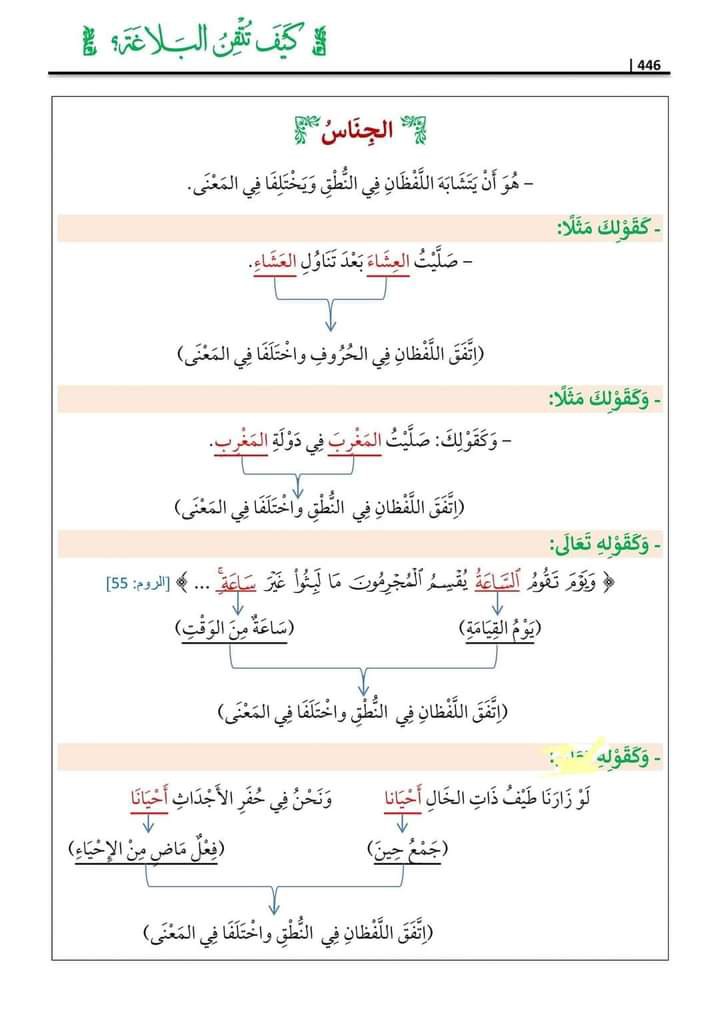 كَيْفَ تُتْقِنُ البَلَاغَةَ؟
446 |
الجِنَاسُ
- هُوَ أَنْ يَتَشَابَهَ اللَّفْظَانِ فِي النُّطْقِ وَيَخْتَلِفَا فِي المَعْنَى.
- كَقَوْلِكَ مَثَلًا:
- صَلَّيْتُ العِشَاءَ بَعْدَ تَنَاوُلِ العَشَاءِ.
(اِتَّفَقَ اللَّفْظانِ فِي الحُرُوفِ واخْتَلَفَا فِي المَعْنَى)
- وَكَقَوْلِكَ مَثَلًا:
- وَكَقَوْلِكَ: صَلَّيْتُ المَغْرِبَ فِي دَوْلَةِ المَغْرِبِ.
(اِتَّفَقَ اللَّفْظانِ فِي النُّطْقِ واخْتَلَفَا فِي المَعْنَى)
- وَكَقَوْلِهِ تَعَالَى:
﴿ وَيَوْمَ تَقُومُ ٱلسَّاعَةُ يُقْسِمُ ٱلْمُجْرِمُونَ مَا لَبِثُوا۟ غَيْرَ سَاعَةٍۚ ... ﴾ [الروم: 55]
(يَوْمُ القِيَامَةِ) (سَاعَةٌ مِنَ الوَقْتِ)
(اِتَّفَقَ اللَّفْظانِ فِي النُّطْقِ واخْتَلَفَا فِي المَعْنَى)
- وَكَقَوْلِهِ :
لَوْ زَارَنَا طَيْفُ ذَاتِ الخَالِ أَحْيَانا وَنَحْنُ فِي حُفَرِ الأَجْدَاثِ أَحْيَانَا
(جَمْعُ حِينَ) (فِعْلٌ مَاضٍ مِنْ الإِحْيَاءِ)
(اِتَّفَقَ اللَّفْظانِ فِي النُّطْقِ واخْتَلَفَا فِي المَعْنَى)